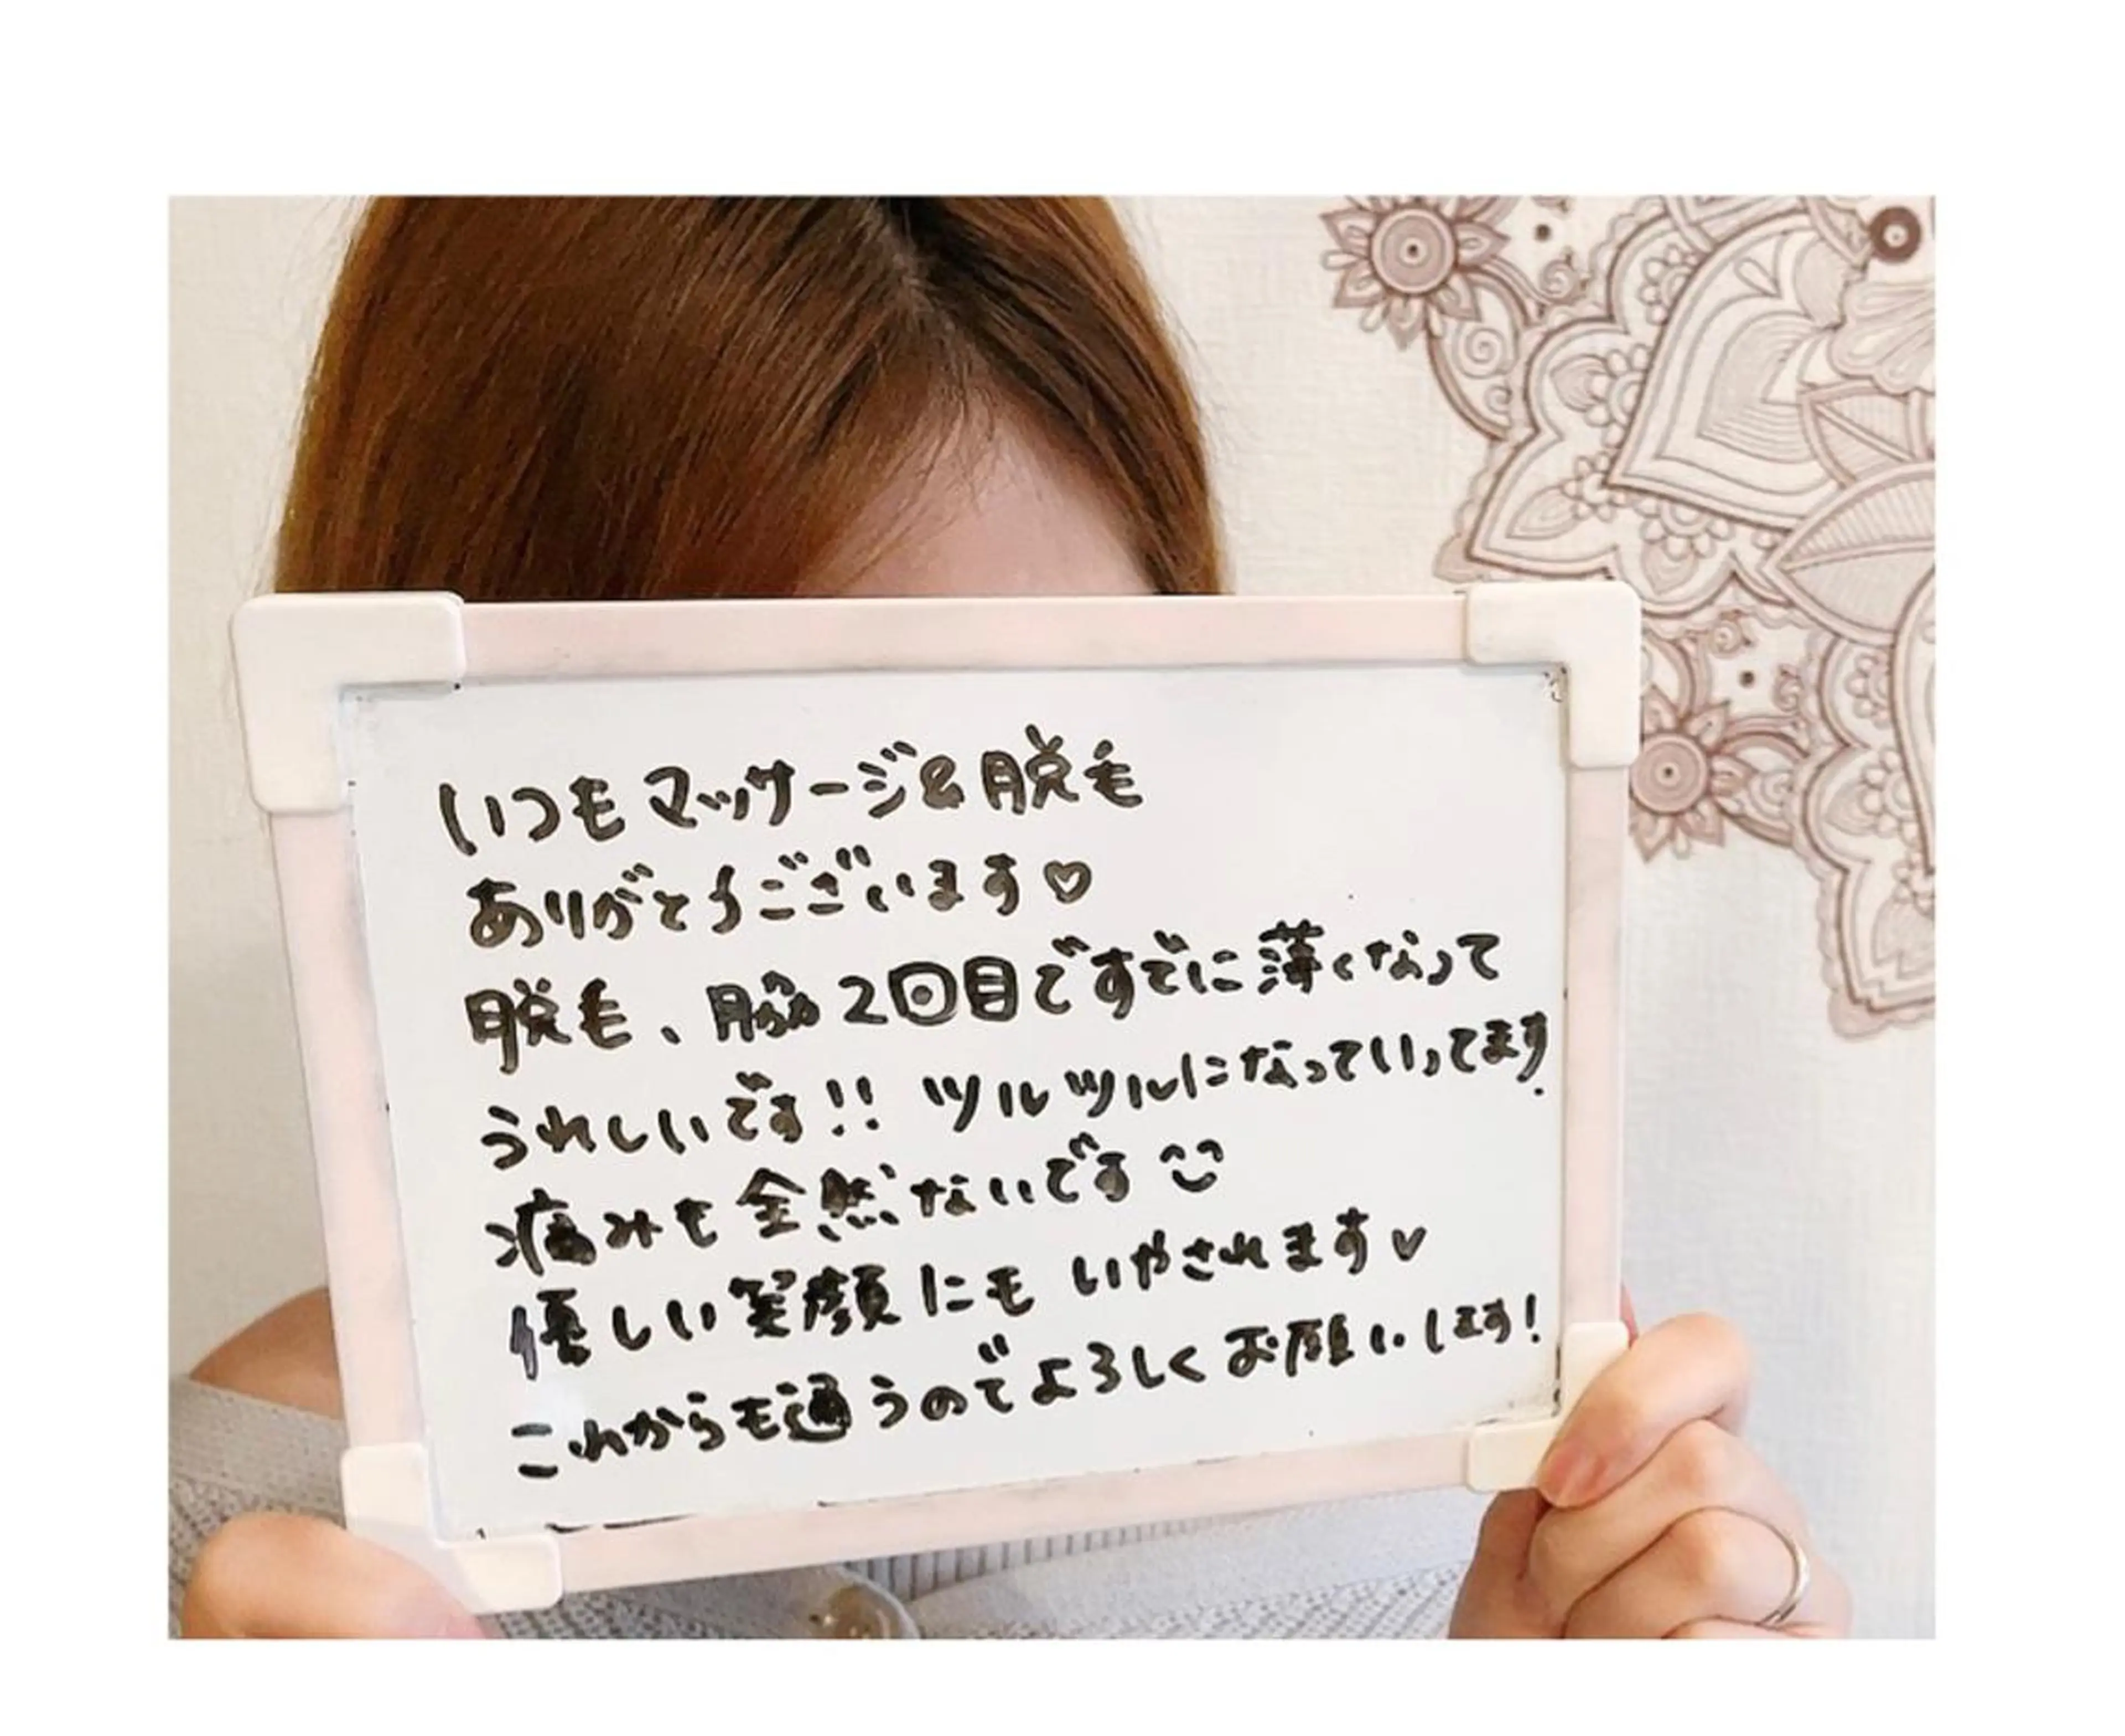 いつもマッサージ&脱毛
ありがとうございます♡
脱毛、脇2回目ですでに薄くなって
うれしいです!! ツルツルになっていってます
痛みも全然ないです^^
優しい笑顔にもいやされます♡
これからも通うのでよろしくお願いします!